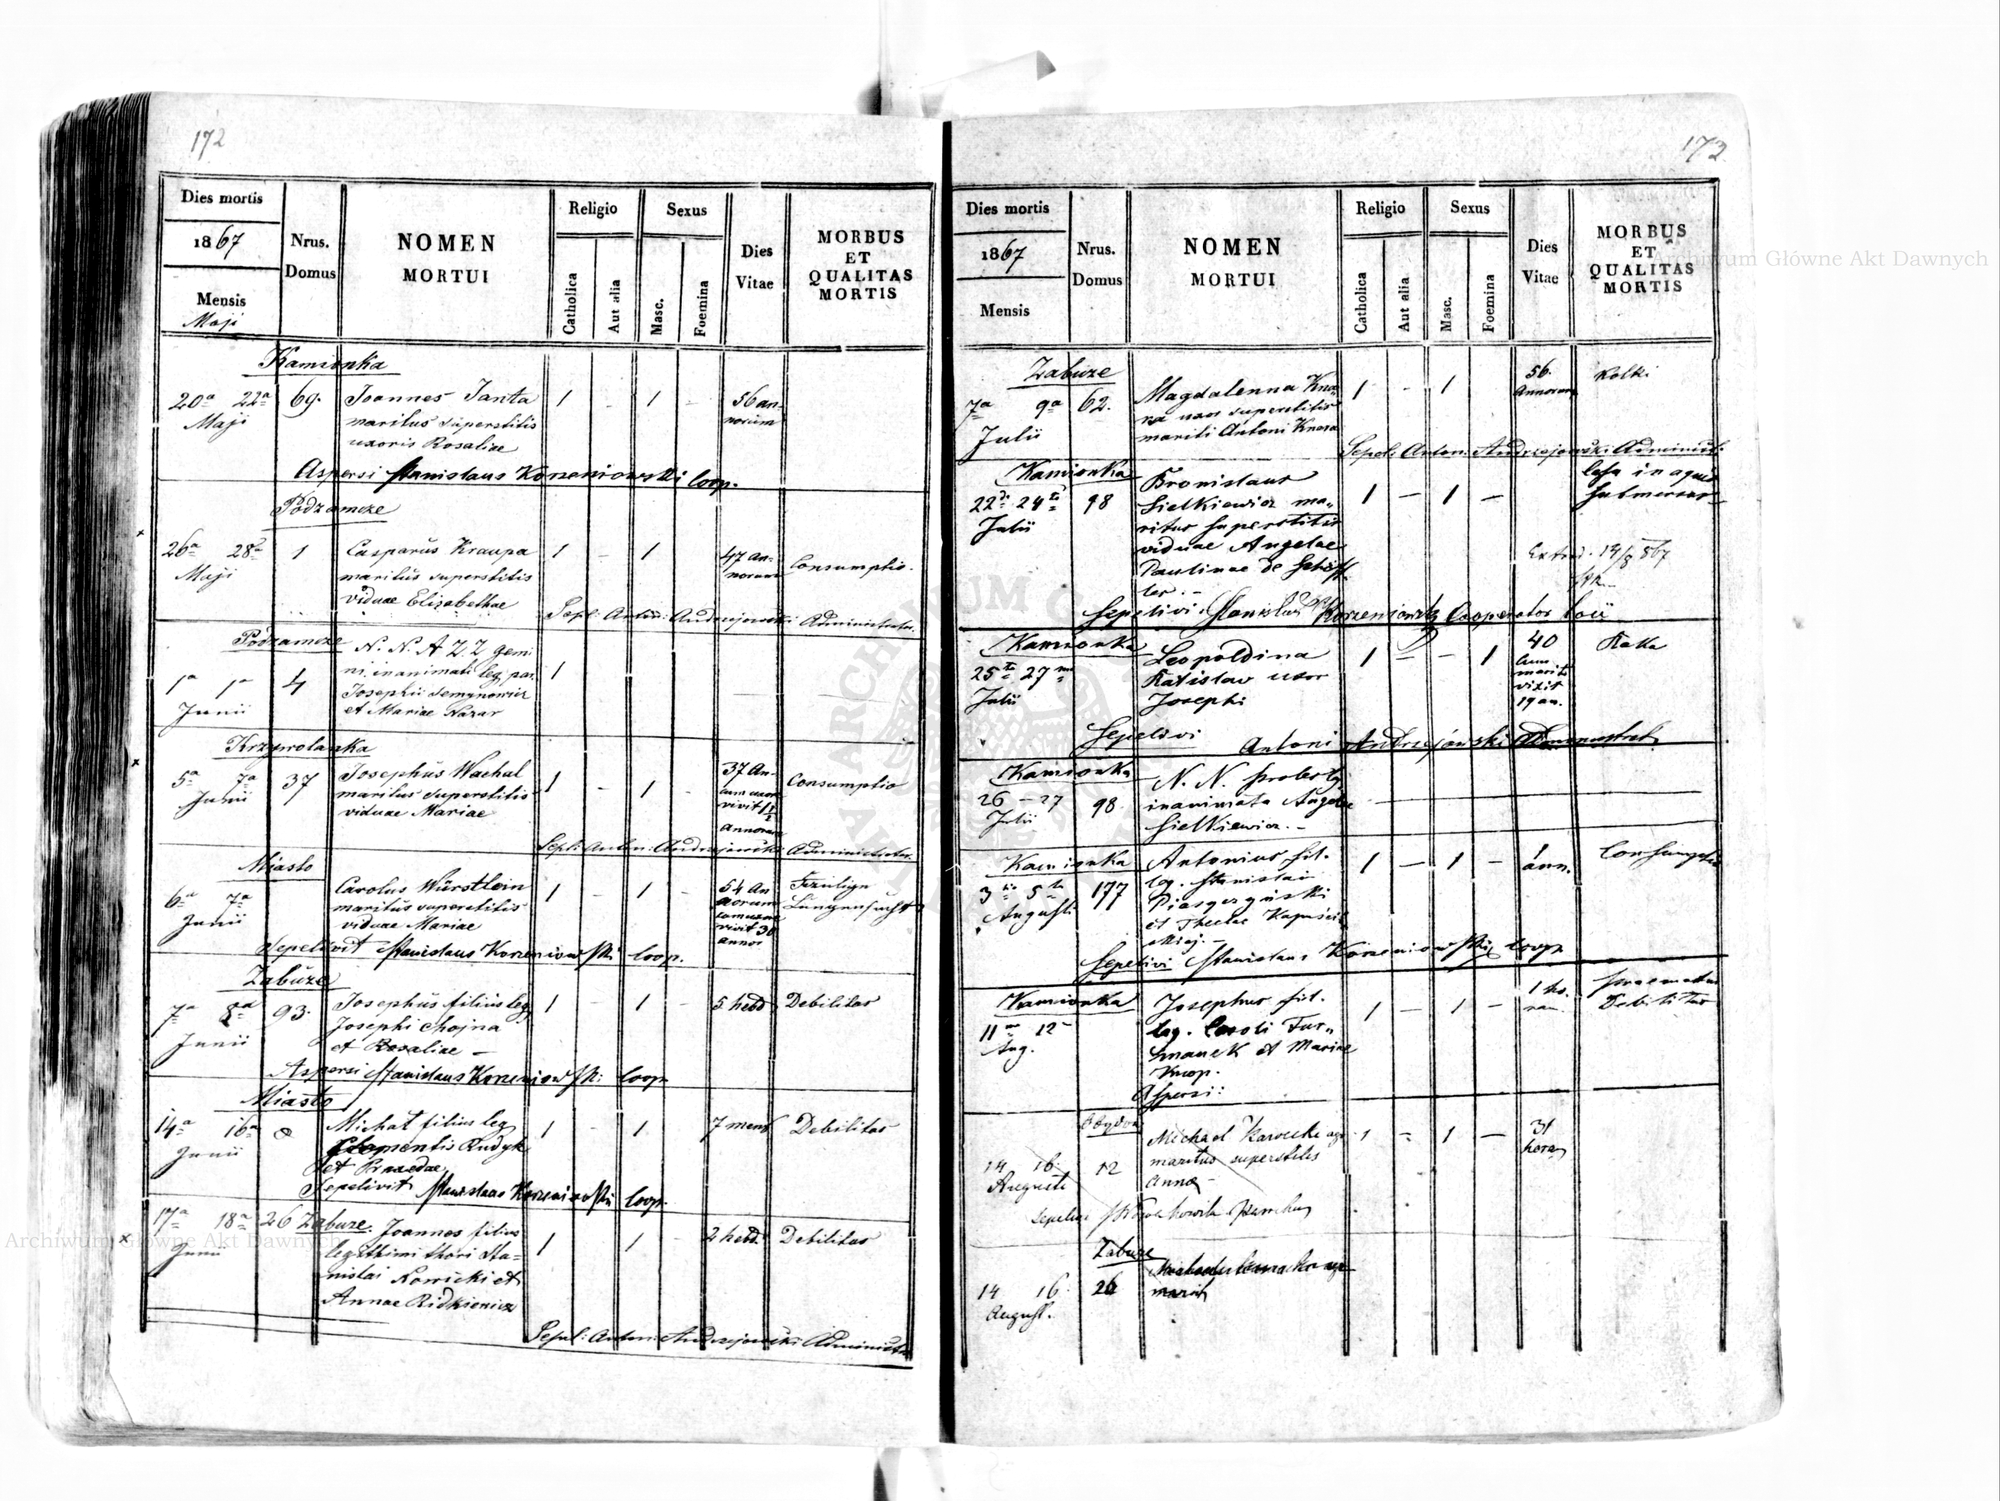 172
Dies mortis
1867
Mensis
Maji
Nrus.
Domus
NOMEN
MORTUI
Religio
Catholica
Aut alia
Sexus
Masc.
Foemina
Dies
Vitae
MORBUS
ET
QUALITAS
MORTIS
Kamionka
20a 22a 69. Joannes Janta 1 - 1 - 56 an-
Maji maritus superstitis norum
uxoris Rosaliae
Aspersi Stanislaus Korzeniowski Coop.
Podzamcze
26a 28a 1 Casparus Kraupa 1 - 1 47 an- Consumptio.
Maji maritus superstitis norum
viduae Elisabethae
Sepel: Anton: Andrzejowski Administrator
Podzamcze N. N. A Z. Z gemi
ni inanimati leg. par. 1
1a 1a 4 Josephi Semynowicz
Junii et Mariae Nazar
Krzywolanka
5a 7a 37 Josephus Wachal 1 - 1 37 An- Consumptio
Junii maritus superstitis cum uxore
viduae Mariae vivit 1/2
annorum
Sepel: Anton: Andrzejowski Administrator
Miasto
6a 7a Carolus Würstlein 1 - 1 - 54 An
Junii maritus superstitis norum Lungensucht
viduae Mariae vivit 30
annos
Sepelivit Stanislaus Korzeniowski Coop.
Zabuże
7a 8a 93. Josephus filius leg. 1 - 1 - 5 hebd Debilitas
Junii Josephi Chojna
et Rosaliae -
Aspersi Stanislaus Korzeniowski Coop
Miasto
14a 16a Michał filius leg. 1 - 1 7 mens Debilitas
Junii Clementis Rudyk
Sepelivit Stanislaus Korzeniowski Coop.
17a 18a 26 Zabuże. Joannes filius
Junii legittimi thori Sta- 1 1 - 2 hebd. Debilitas
nislai Nowicki et
Annae Ridkiewicz
Sepel: Anton: Andrzejowski Administrator
172
Dies mortis
1867
Mensis
Nrus.
Domus
NOMEN
MORTUI
Religio
Catholica
Aut alia
Sexus
Masc.
Foemina
Dies
Vitae
MORBUS
ET
QUALITAS
MORTIS
Zabuże
7a 9a 62. Magdalenna Kna- 1 - 1 56. Kolki
Julii ra uxor superstitis Annorum
mariti Antoni Knara
Sepel: Anton: Andrzejowski Administ.
Kamionka Bronislaus casu in aquis
22da 24ta 98 Sielkiewicz ma- 1 - 1 - submersus
Julii ritus superstitis
viduae Angelae
Paulinae de Scheff
ler. -
Extrad. 14/8 867
Sepelivi Stanislaus Korzeniowski Cooperator loci
Kamionka Leopoldina 1 - - 1 40 Raka
25ta 27ma Ratislaw uxor cum
Julii Josephi marito
vixit
19 an.
Sepelivi Antoni Andrzejowski Administrat.
Kamionka N. N. proles leg.
26 - 27 98. inanimata Angelae
Julii Sielkiewicz. -
Kamionka Antonius fil. 1 - 1 - 1 Consumptio
3tia 5ta 177 leg. Stanislai ann.
Augusti
et Theclae Kapuściń
skiej. -
Sepelivi Stanislaus Korzeniowski Coop
Kamionka Josephus fil. 1 - 1 - 1 ho- praematura
11ma 12 leg. Caroli Fur- ra Debilitas
Aug. manek et Mariae
Knop.
Aspersi:
14 16. 12 Michael 1 - 1 - 31
Augusti maritus superstitis horas
Annae -
Zabuże
14 16. 26
August.
Archiwum Główne Akt Dawnych
Archiwum Główne Akt Dawnych